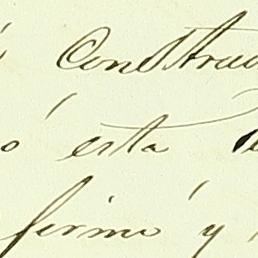 Constru
ó esta
firmó y